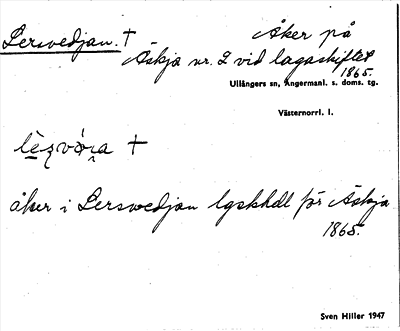 Lersvedjan. † Åker på
Äskja nr. 2 vid lagaskiftet
1865.
Ullångers sn, Ångermanl. s. doms. tg.
Västernorrl. l.
†
åker i Lerswedjan lgskhdl för Äskja
1865.
Sven Hiller 1947